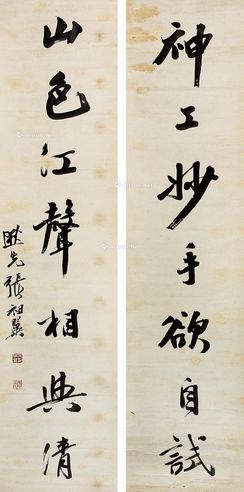 神工妙手欲自試
山色江聲相與清
逖先張祖翼